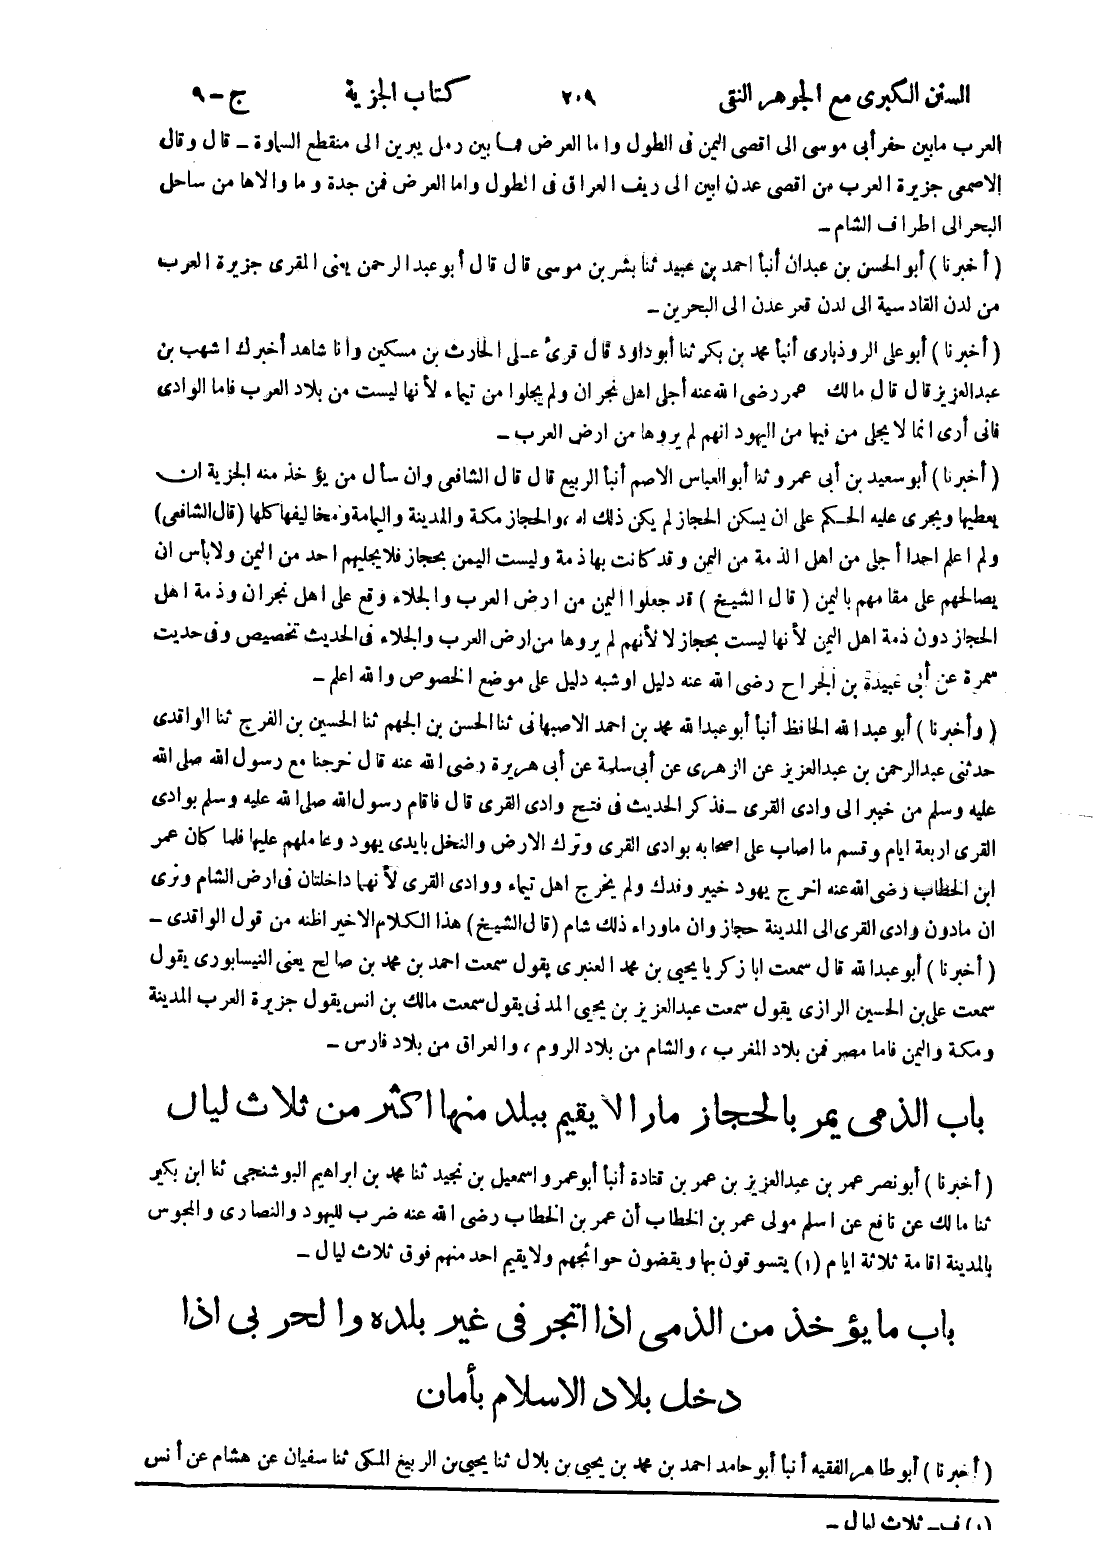 السنن الكبرى مع الجوهر النقى ٢٠٩ كتاب الجزية ج-٩
العرب مابين حفر أبى موسى الى اقصى اليمن فى الطول واما العرض فما بين رمل يبرين الى منقطع السماوة - قال وقال
الاصمعى جزيرة العرب من اقصى عدن ابين الى ريف العراق فى الطول واما العرض فمن جدة وما والاها من ساحل
البحر الى اطراف الشام -
( أخبرنا ) أبو الحسن بن عبدان أنبأ احمد بن عبيد ثنا بشر بن موسى قال قال أبو عبد الرحمن يعنى المقرى جزيرة العرب
من لدن القادسية الى لدن قعر عدن الى البحرين -
( أخبرنا ) أبو على الروذبارى أنبأ محمد بن بكر ثنا أبو داود قال قرئ على الحارث بن مسكين وانا شاهد أخبرك اشهب بن
عبدالعزيز قال قال مالك عمر رضى الله عنه أجلى اهل نجران ولم يجلوا من تيماء لأنها ليست من بلاد العرب فاما الوادى
فانى أرى انما لا يجلى من فيها من اليهود انهم لم يروها من ارض العرب -
( أخبرنا ) أبو سعيد بن أبى عمرو ثنا أبو العباس الاصم أنبأ الربيع قال قال الشافعى وان سأل من يؤخذ منه الجزية ان
يعطيها ويجرى عليه الحكم على ان يسكن الحجاز لم يكن ذلك له ، والحجاز مكة والمدينة واليمامة ومخاليفها كلها (قال الشافعى)
ولم اعلم احدا أجلى من اهل الذمة من اليمن وقد كانت بها ذمة وليست اليمن بحجاز فلا يجليهم احد من اليمن ولا بأس ان
يصالحهم على مقامهم باليمن ( قال الشيخ ) قد جعلوا اليمن من ارض العرب والجلاء وقع على اهل نجران وذمة اهل
الحجاز دون ذمة اهل اليمن لأنها ليست بحجاز لا لأنهم لم يروها من ارض العرب والجلاء فى الحديث تخصيص وفى حديث
سمرة عن أبى عبيدة بن الجراح رضى الله عنه دليل اوشبه دليل على موضع الخصوص والله اعلم -
( وأخبرنا ) أبو عبد الله الحافظ أنبأ أبو عبد الله محمد بن احمد الاصبهانى ثنا الحسن بن الجهم ثنا الحسين بن الفرج ثنا الواقدى
حدثنى عبدالرحمن بن عبدالعزيز عن الزهرى عن أبى سلمة عن أبى هريرة رضى الله عنه قال خرجنا مع رسول الله صلى الله
عليه وسلم من خيبر الى وادى القرى - فذكر الحديث فى فتح وادى القرى قال فاقام رسول الله صلى الله عليه وسلم بوادى
القرى اربعة ايام وقسم ما اصاب على اصحابه بوادى القرى وترك الارض والنخل بايدى يهود وعاملهم عليها فلما كان عمر
ابن الخطاب رضى الله عنه اخرج يهود خيبر وفدك ولم يخرج اهل تيماء ووادى القرى لأنهما داخلتان فى ارض الشام ونرى
ان مادون وادى القرى الى المدينة حجاز وان ماوراء ذلك شام (قال الشيخ) هذا الكلام الاخير اظنه من قول الواقدى -
( أخبرنا ) أبو عبدالله قال سمعت ابا زكريا يحيى بن محمد العنبرى يقول سمعت احمد بن محمد بن صالح يعنى النيسابورى يقول
سمعت على بن الحسين الرازى يقول سمعت عبدالعزيز بن يحيى المدنى يقول سمعت مالك بن انس يقول جزيرة العرب المدينة
ومكة واليمن فاما مصر فمن بلاد المغرب ، والشام من بلاد الروم ، والعراق من بلاد فارس -
باب الذمى يمر بالحجاز مارا لا يقيم ببلد منها اكثر من ثلاث ليال
( أخبرنا ) أبو نصر عمر بن عبدالعزيز بن عمر بن قتادة أنبأ أبو عمرو اسمعيل بن نجيد ثنا محمد بن ابراهيم البوشنجى ثنا ابن بكير
ثنا مالك عن نافع عن اسلم مولى عمر بن الخطاب أن عمر بن الخطاب رضى الله عنه ضرب لليهود والنصارى والمجوس
بالمدينة اقامة ثلاثة ايام (١) يتسوقون بها ويقضون حوائجهم ولا يقيم احد منهم فوق ثلاث ليال -
باب ما يؤخذ من الذمى اذا اتجر فى غير بلده والحربى اذا
دخل بلاد الاسلام بأمان
( أخبرنا ) أبو طاهر الفقيه أنبأ أبو حامد احمد بن محمد بن يحيى بن بلال ثنا يحيى بن الربيع المكى ثنا سفيان عن هشام عن أنس
(١) ف - ثلاث ليال -